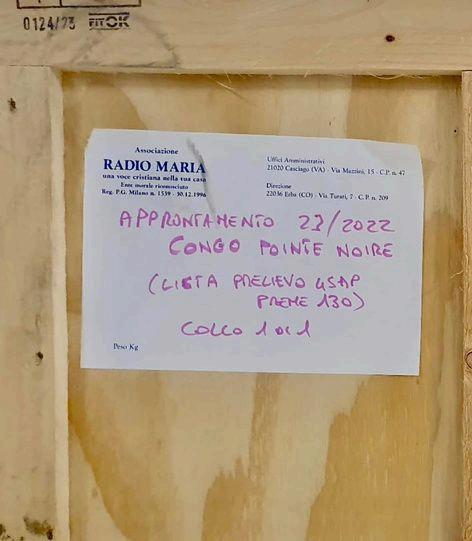 0124/23 FITOK
Associazione
RADIO MARIA
una voce cristiana nella tua casa
Ente morale riconosciuto
Reg. P.G. Milano n. 1539 - 30.12.1996
Uffici Amministrativi
21020 Casciago (VA) - Via Mazzini, 15 - C.P. n. 47
Direzione
22036 Erba (CO) - Via Turati, 7 - C.P. n. 209
APPRONTAMENTO 23/2022
CONGO POINTE NOIRE
(LISTA PRELIEVO
PREME 130)
COLLO 1 DI 1
Peso Kg